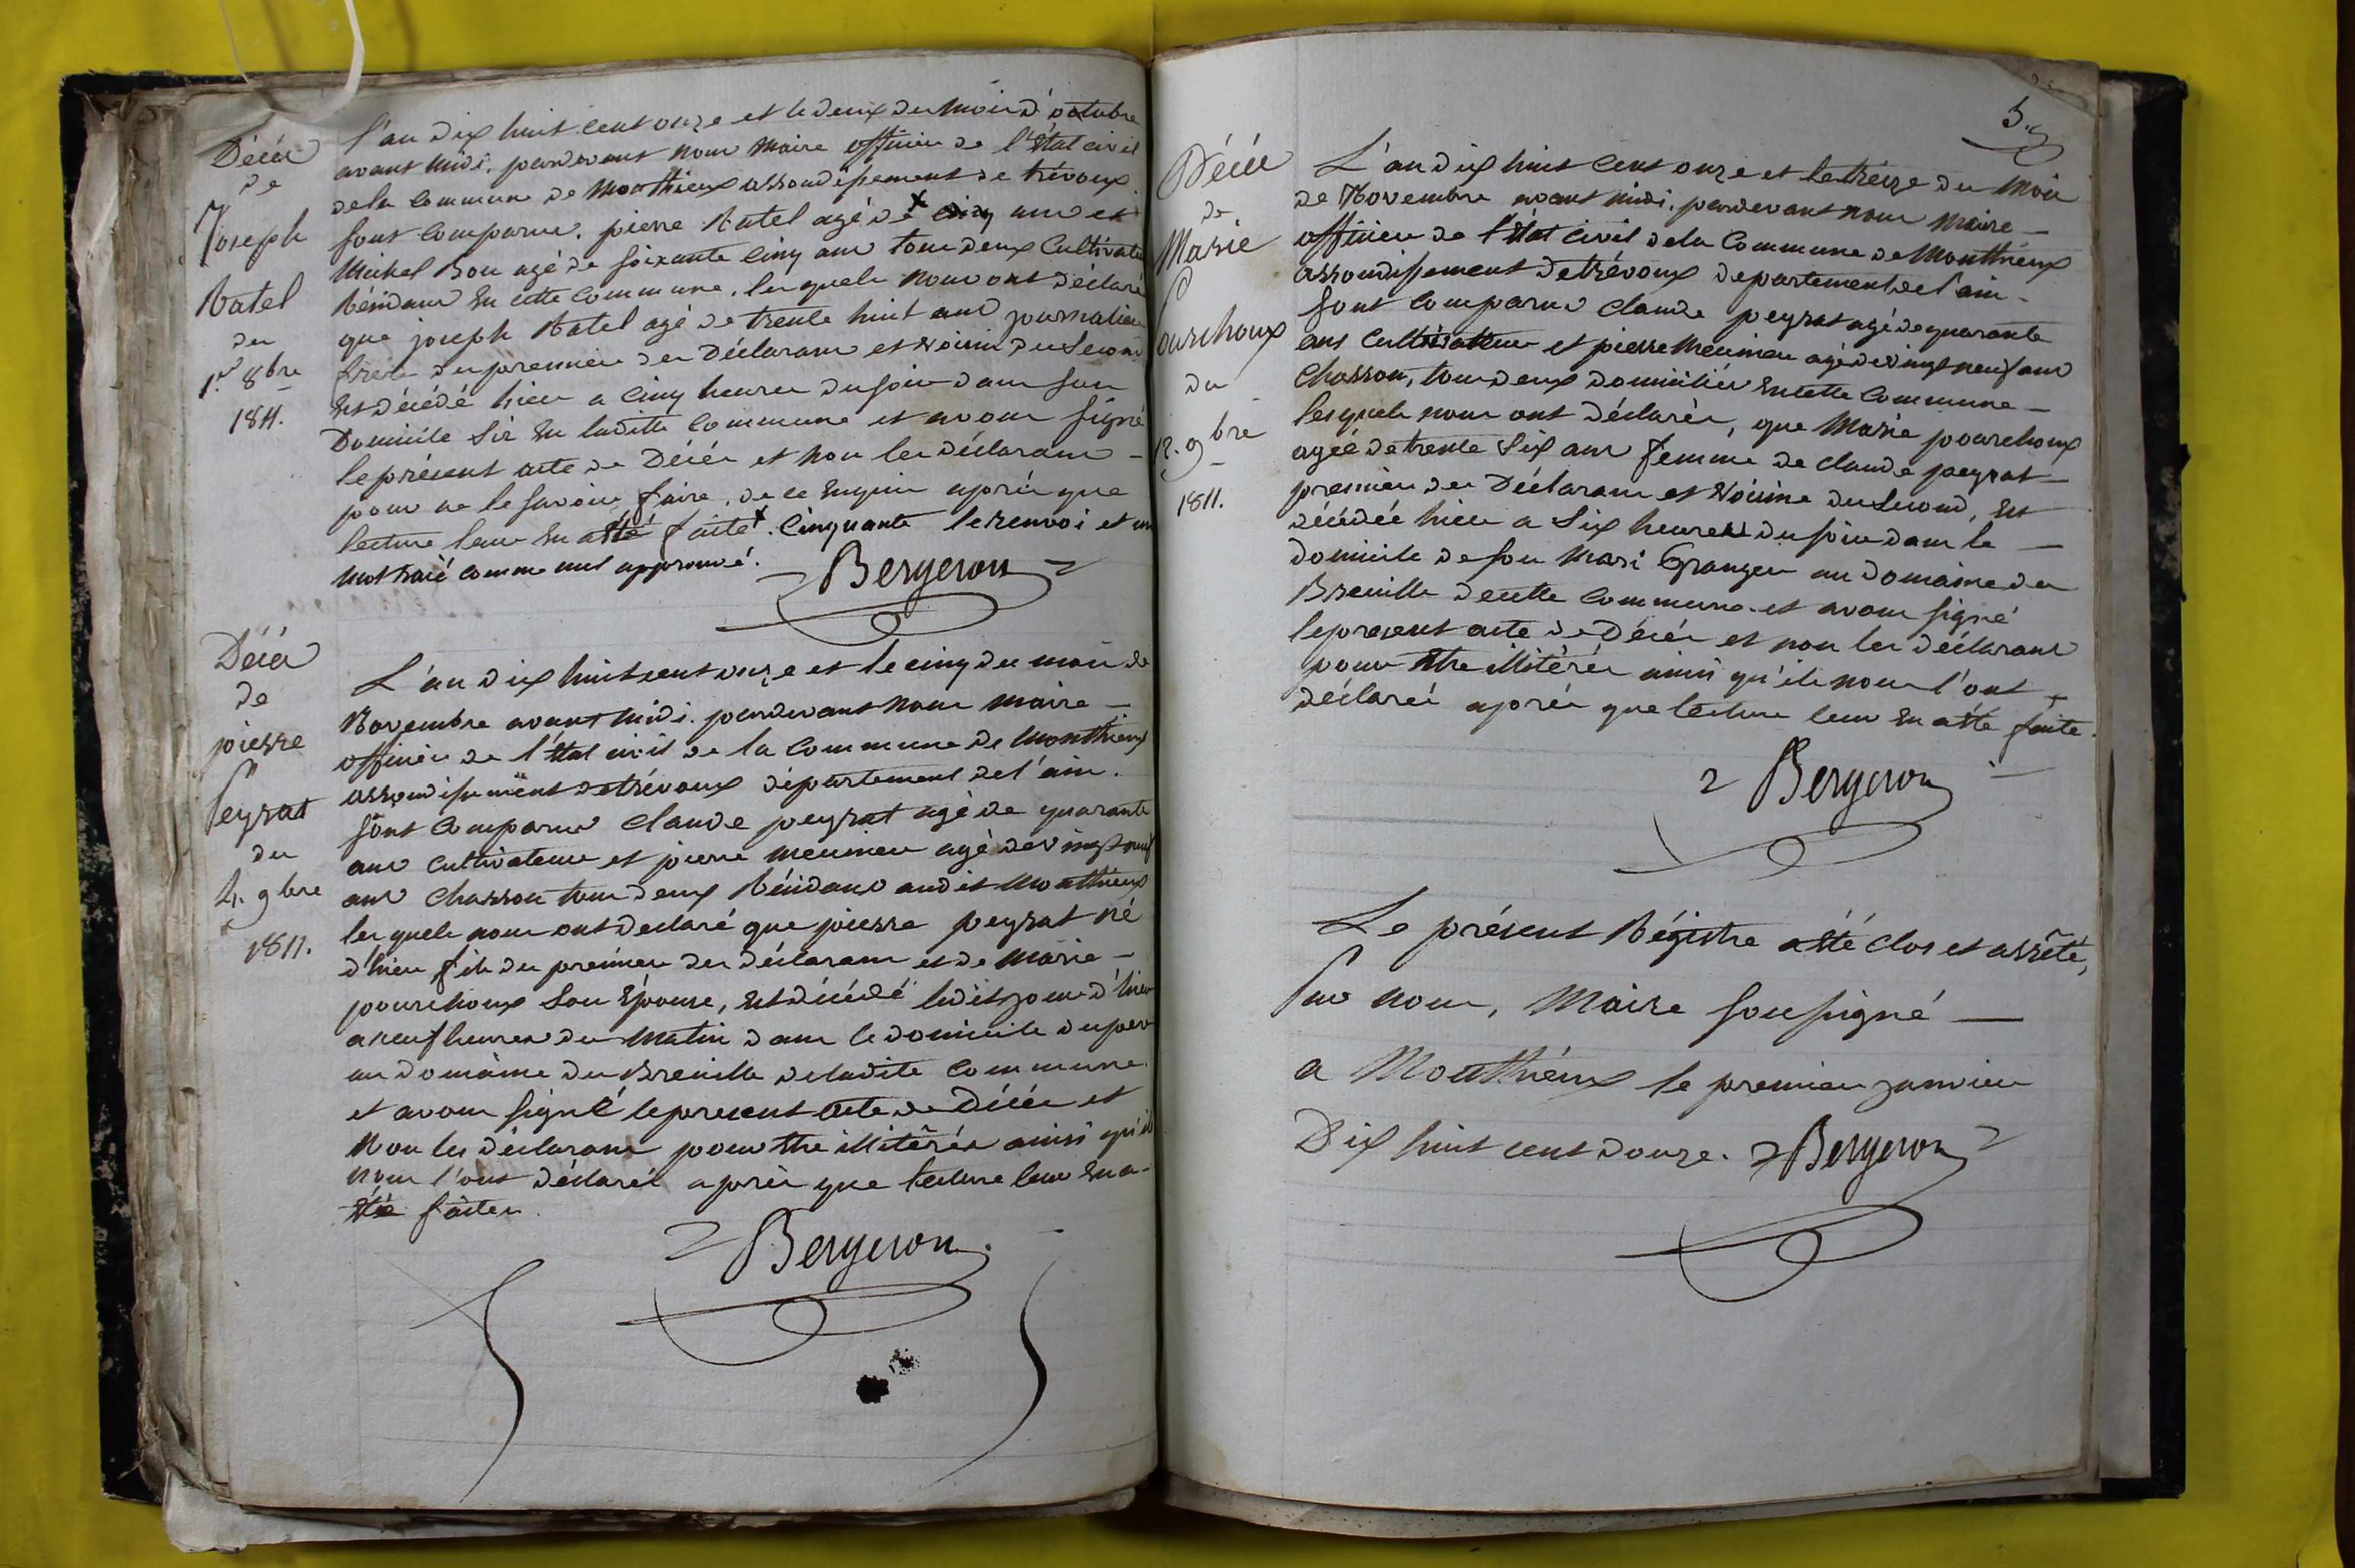 Décés
de
Joseph
Ratel
du
1.er 8bre
1811.
l'an dix huit cent onze et le deux du mois d'octobre
avant midi. pardevant nous Maire officier de l'état civil
de la commune de Monthieux arrondissement de trévoux
sont comparus. pierre Ratel agé de x cinq ans et
Michel Bon agé de soixante cinq ans tous deux Cultivate
Résidans en cette Commune. les quels nous ont déclaré
que joseph Ratel agé de trente huit ans journalier
frère du premier des Déclarans et voisin du second
est décédé hier a cinq heures du soir dans son
Domicile sis en ladite Commune et avons signé
le présent acte de Décés et non les déclarans -
pour ne le savoir faire. de ce enquis après que
lecture leur en a été faite x. Cinquante le renvoi et un
mot raié comme nul approuvé.
Bergeron
Décés
de
pierre
Peyrat
du
4. 9bre
1811.
L'an dix huit cent onze et le cinq du mois de
Novembre avant midi. pardevant nous maire -
officier de l'état civil de la Commune de Monthieux
arrondissement de trévoux département de l'ain.
sont Comparus Claude peyrat agé de quarante
ans cultivateur et pierre meunier agé de vingt neuf
ans Charron tous deux Résidans audit Monthieux
les quels nous ont declaré que pierre peyrat né
d'hier fils du premier des déclarans et de Marie -
pourchoux son Épouse, est décédé ledit jour d'hier
a neuf heures du Matin dans le domicile du pere
au domaine du Breuille de ladite Commune.
et avons signé le present acte de Décés et
Non les déclarans pour être illitérés ainsi qu'ils
nous l'ont déclarés après que lecture leur en a-
été faites.
Bergeron
5.
Décés
de
Marie
Pourchoux
du
12. 9bre
1811.
L'an dix huit Cent onze et le treize du mois
de Novembre avant midi. pardevant nous Maire -
officier de l'état civil de la Commune de Monthieux
arrondissement de trévoux departement de l'ain -
sont Comparus Claude peyrat agé de quarante
ans Cultivateur et pierre Meunier agé de vingt neuf ans
Charron, tous deux domiciliés en cette Commune -
les quels nous ont déclarés, que Marie pourchoux
agée de trente six ans femme de Claude peyrat -
premier des Déclarans et voisine du second, est
décédée hier a six heures du soir dans le -
domicile de son Mari Granger au domaine du
Breuille de cette Commune. et avons signé
le present acte de Décés et non les déclarans
pour être illitérés ainsi qu'ils nous l'ont
déclarés après que lecture leur en a été faite.
Bergeron
Le présent Régistre a été clos et arrêté,
Par nous, Maire soussigné -
a Monthieux le premier janvier
Dix huit cent douze. Bergeron